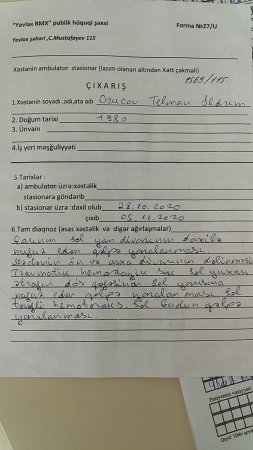 "Yevlax RMX" publik hüquqi şəxsi
Forma №27/U
Yevlax şəhəri ,C.Mustafayev 115
Xəstənin ambulator stasionar (lazım olanan altından Xətt çəkməli)
1569/115
ÇIXARIŞ
1.Xəstənin soyadı ,adı,ata adı Orucov Telman İldrım
2. Doğum tarixi 1980
3. Ünvanı
4.İş yeri məşğuliyyəti
5.Tarixlər :
a) ambulator üzrə:xəstəlik
stasionara göndərib
b) stasionar üzrə :daxil olub 28.10.2020
çıxıb 05.11.2020
6.Tam diaqnoz (əsas xəstəlik və digər ağırlaşmalar)
Qarının sol yan divarının daxilə
nufuz edən qəlpə yaralanması.
Mədənin ön və arxa divarının dəlinməsi
Travmatik hemorragik şok Sol yuxarı
ətrafın döş qəfəsinin sol yarısına
nufuz edən qəlpə yaralanması. Sol
tərəfli hemotoraks. Sol budun qəlpə
yaralanması.